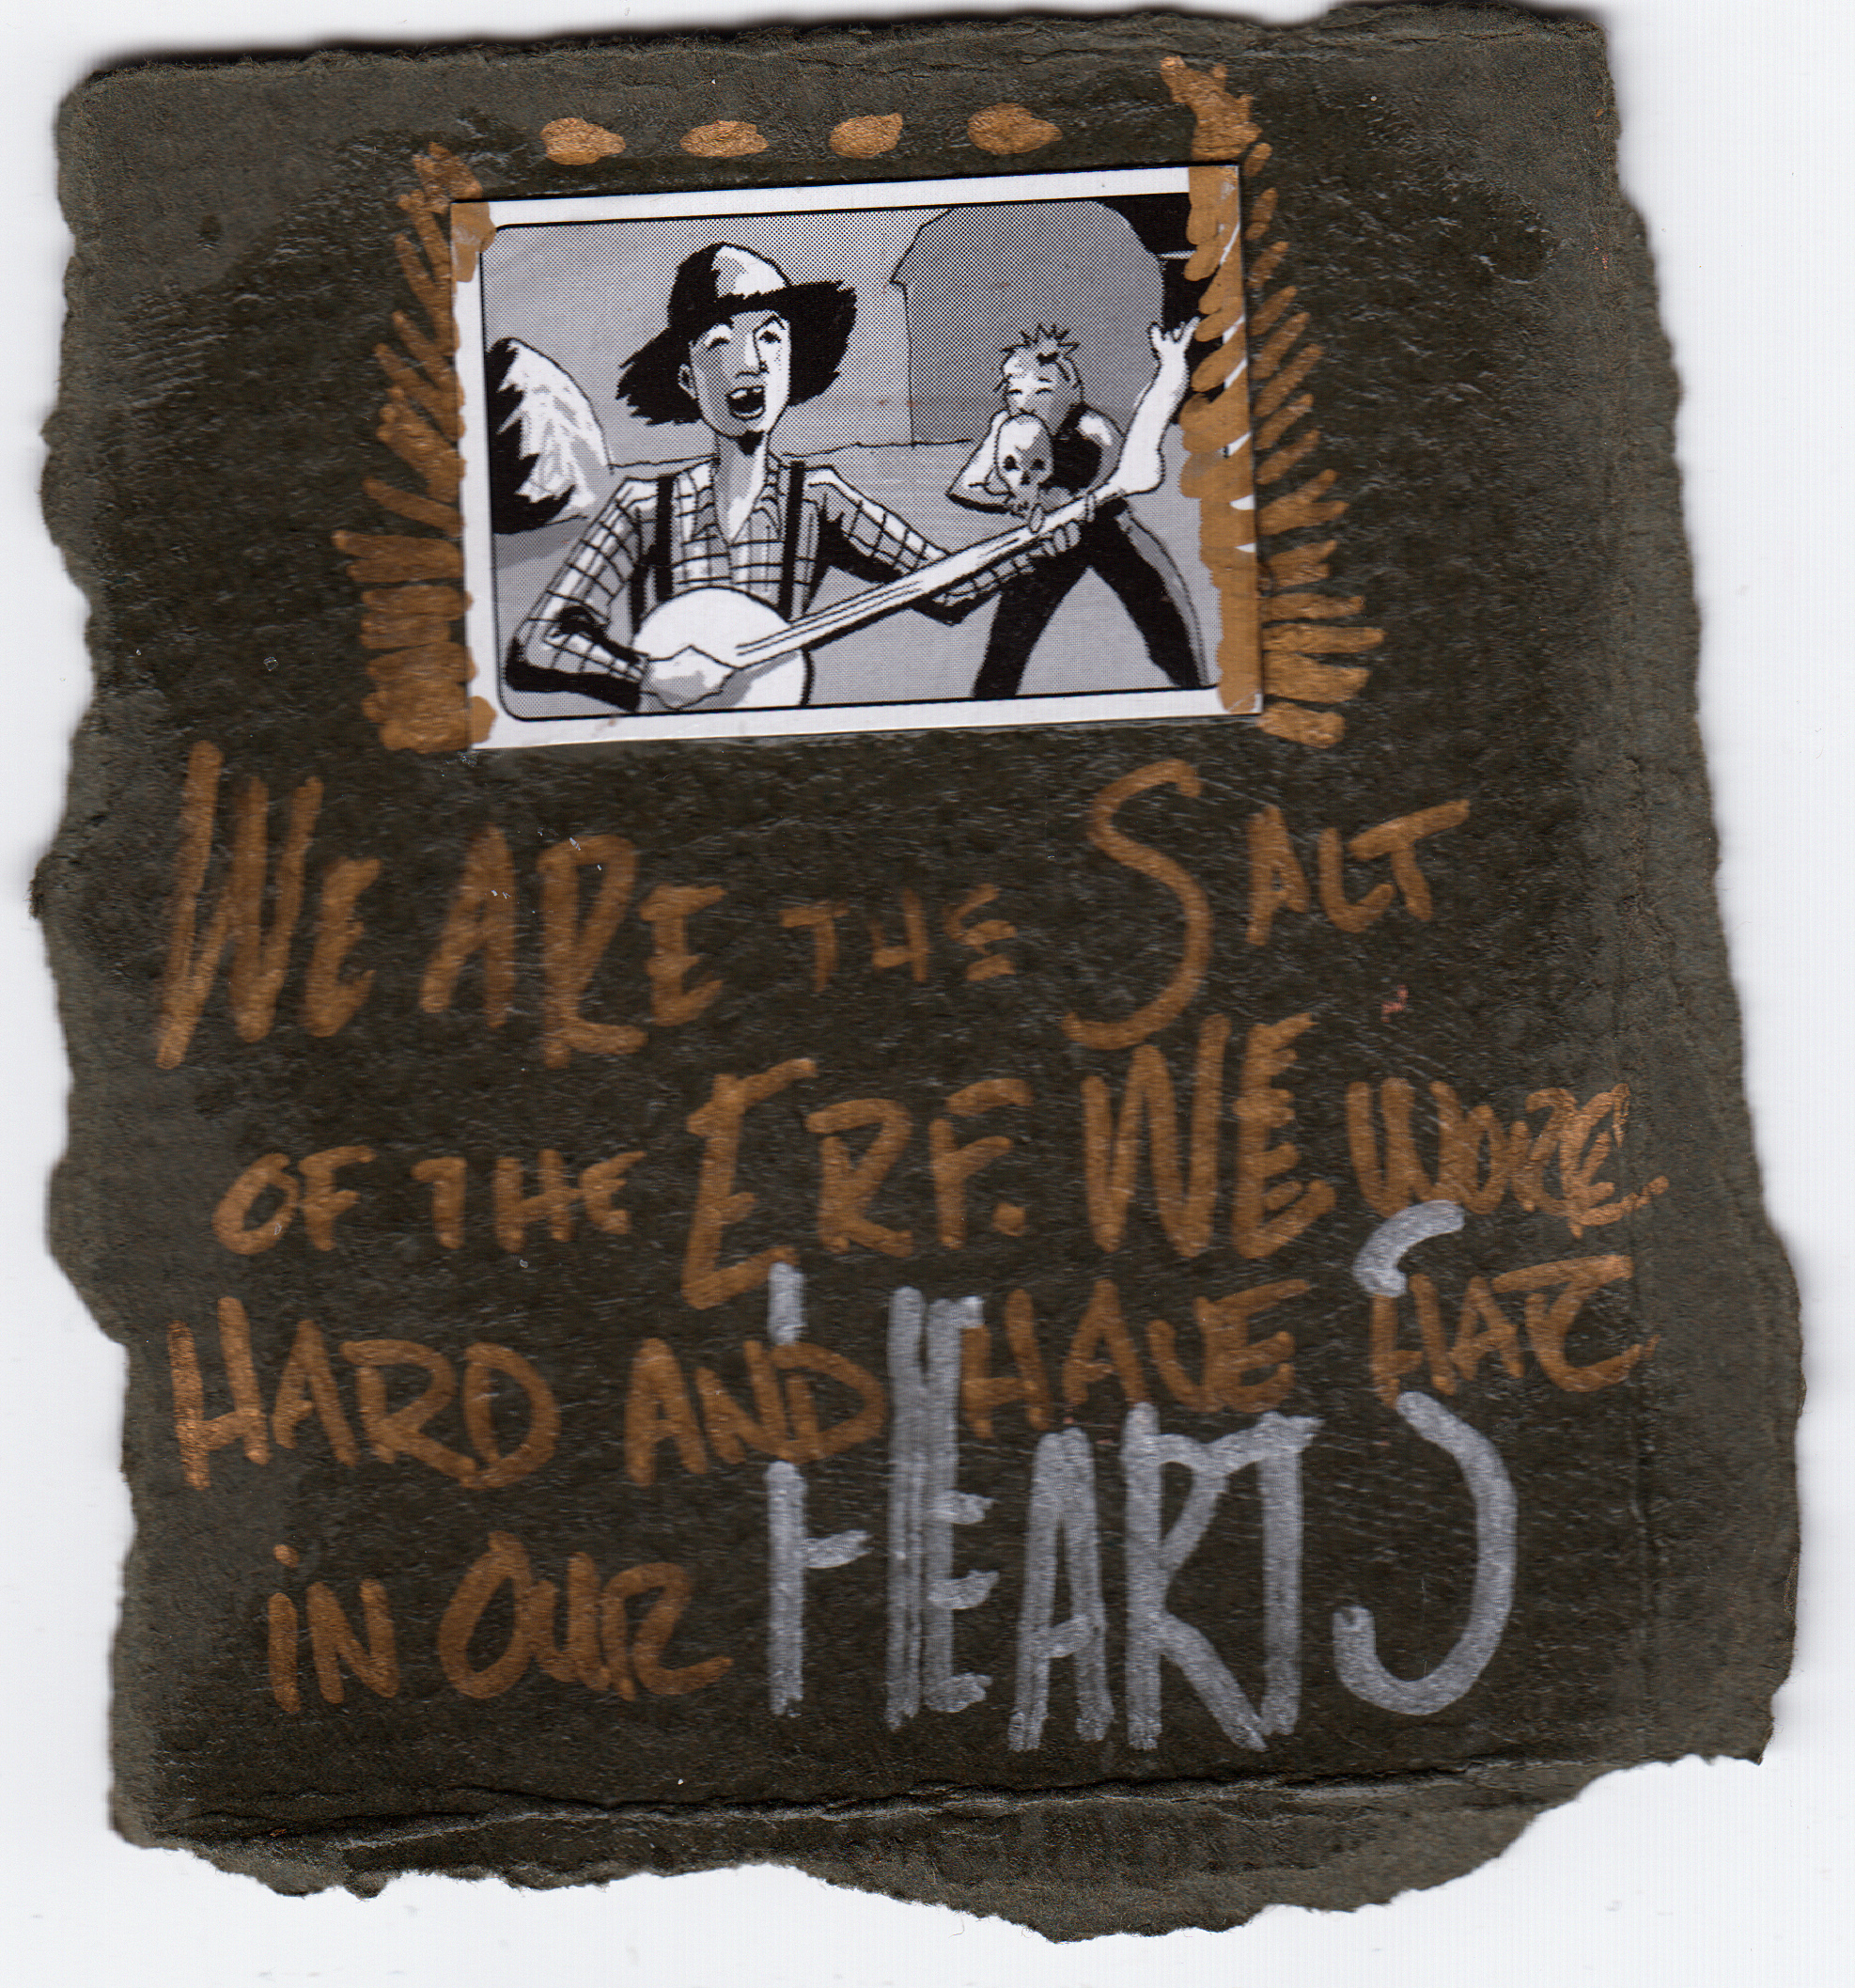 WE ARE THE SALT
OF THE ERF. WE WORK
HARD AND HAVE HATE
iN OUR HEARTS